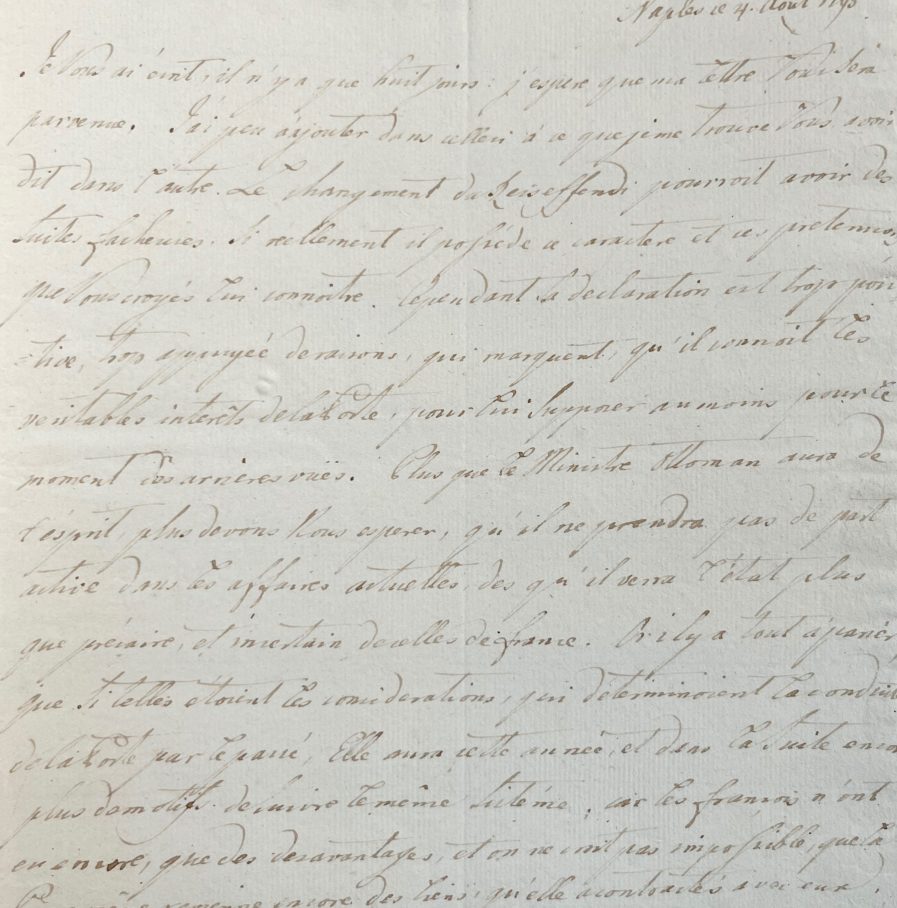 Naples ce 4. Aout
Je Vous ai écrit, il n'y a que huit jours: j'espere que ma lettre Vous sera
parvenue. J'ai peu à ajouter dans celleci à ce que je me trouve Vous avoir
dit dans l'autre. Le changement du Reis effendi pourroit avoir des
suites facheuses. Si reellement il possède ce caractere et ces pretensions
que Vous croyés lui connoitre. Cependant la declaration est trop posi
=tive, trop appuyée de raisons, qui marquent, qu'il connoit les
veritables interêts de la Porte, pour lui supposer au moins pour le
moment des arrieres vuës. Plus que le Ministre Ottoman aura de
l'esprit, plus devons Nous esperer, qu'il ne prendra pas de part
active dans les affaires actuelles, des qu'il verra l'état plus
que précaire, et incertain de celles de france. Or il y a tout à parier
que si telles étoient les considerations, qui déterminoient la conduit
de la Porte par le passé, Elle aura cette année, et dans la suite encor
plus de motifs de suivre le même sistême, car les francois n'ont
eu encore, que des desavantages, et on ne croit pas impossible, que la
revienne encore des liens, qu'elle a contractés avec eux.